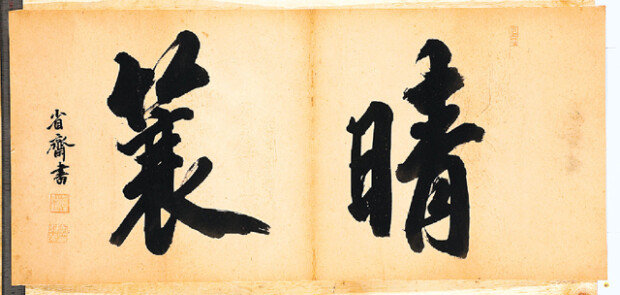 晴簑
省齋書